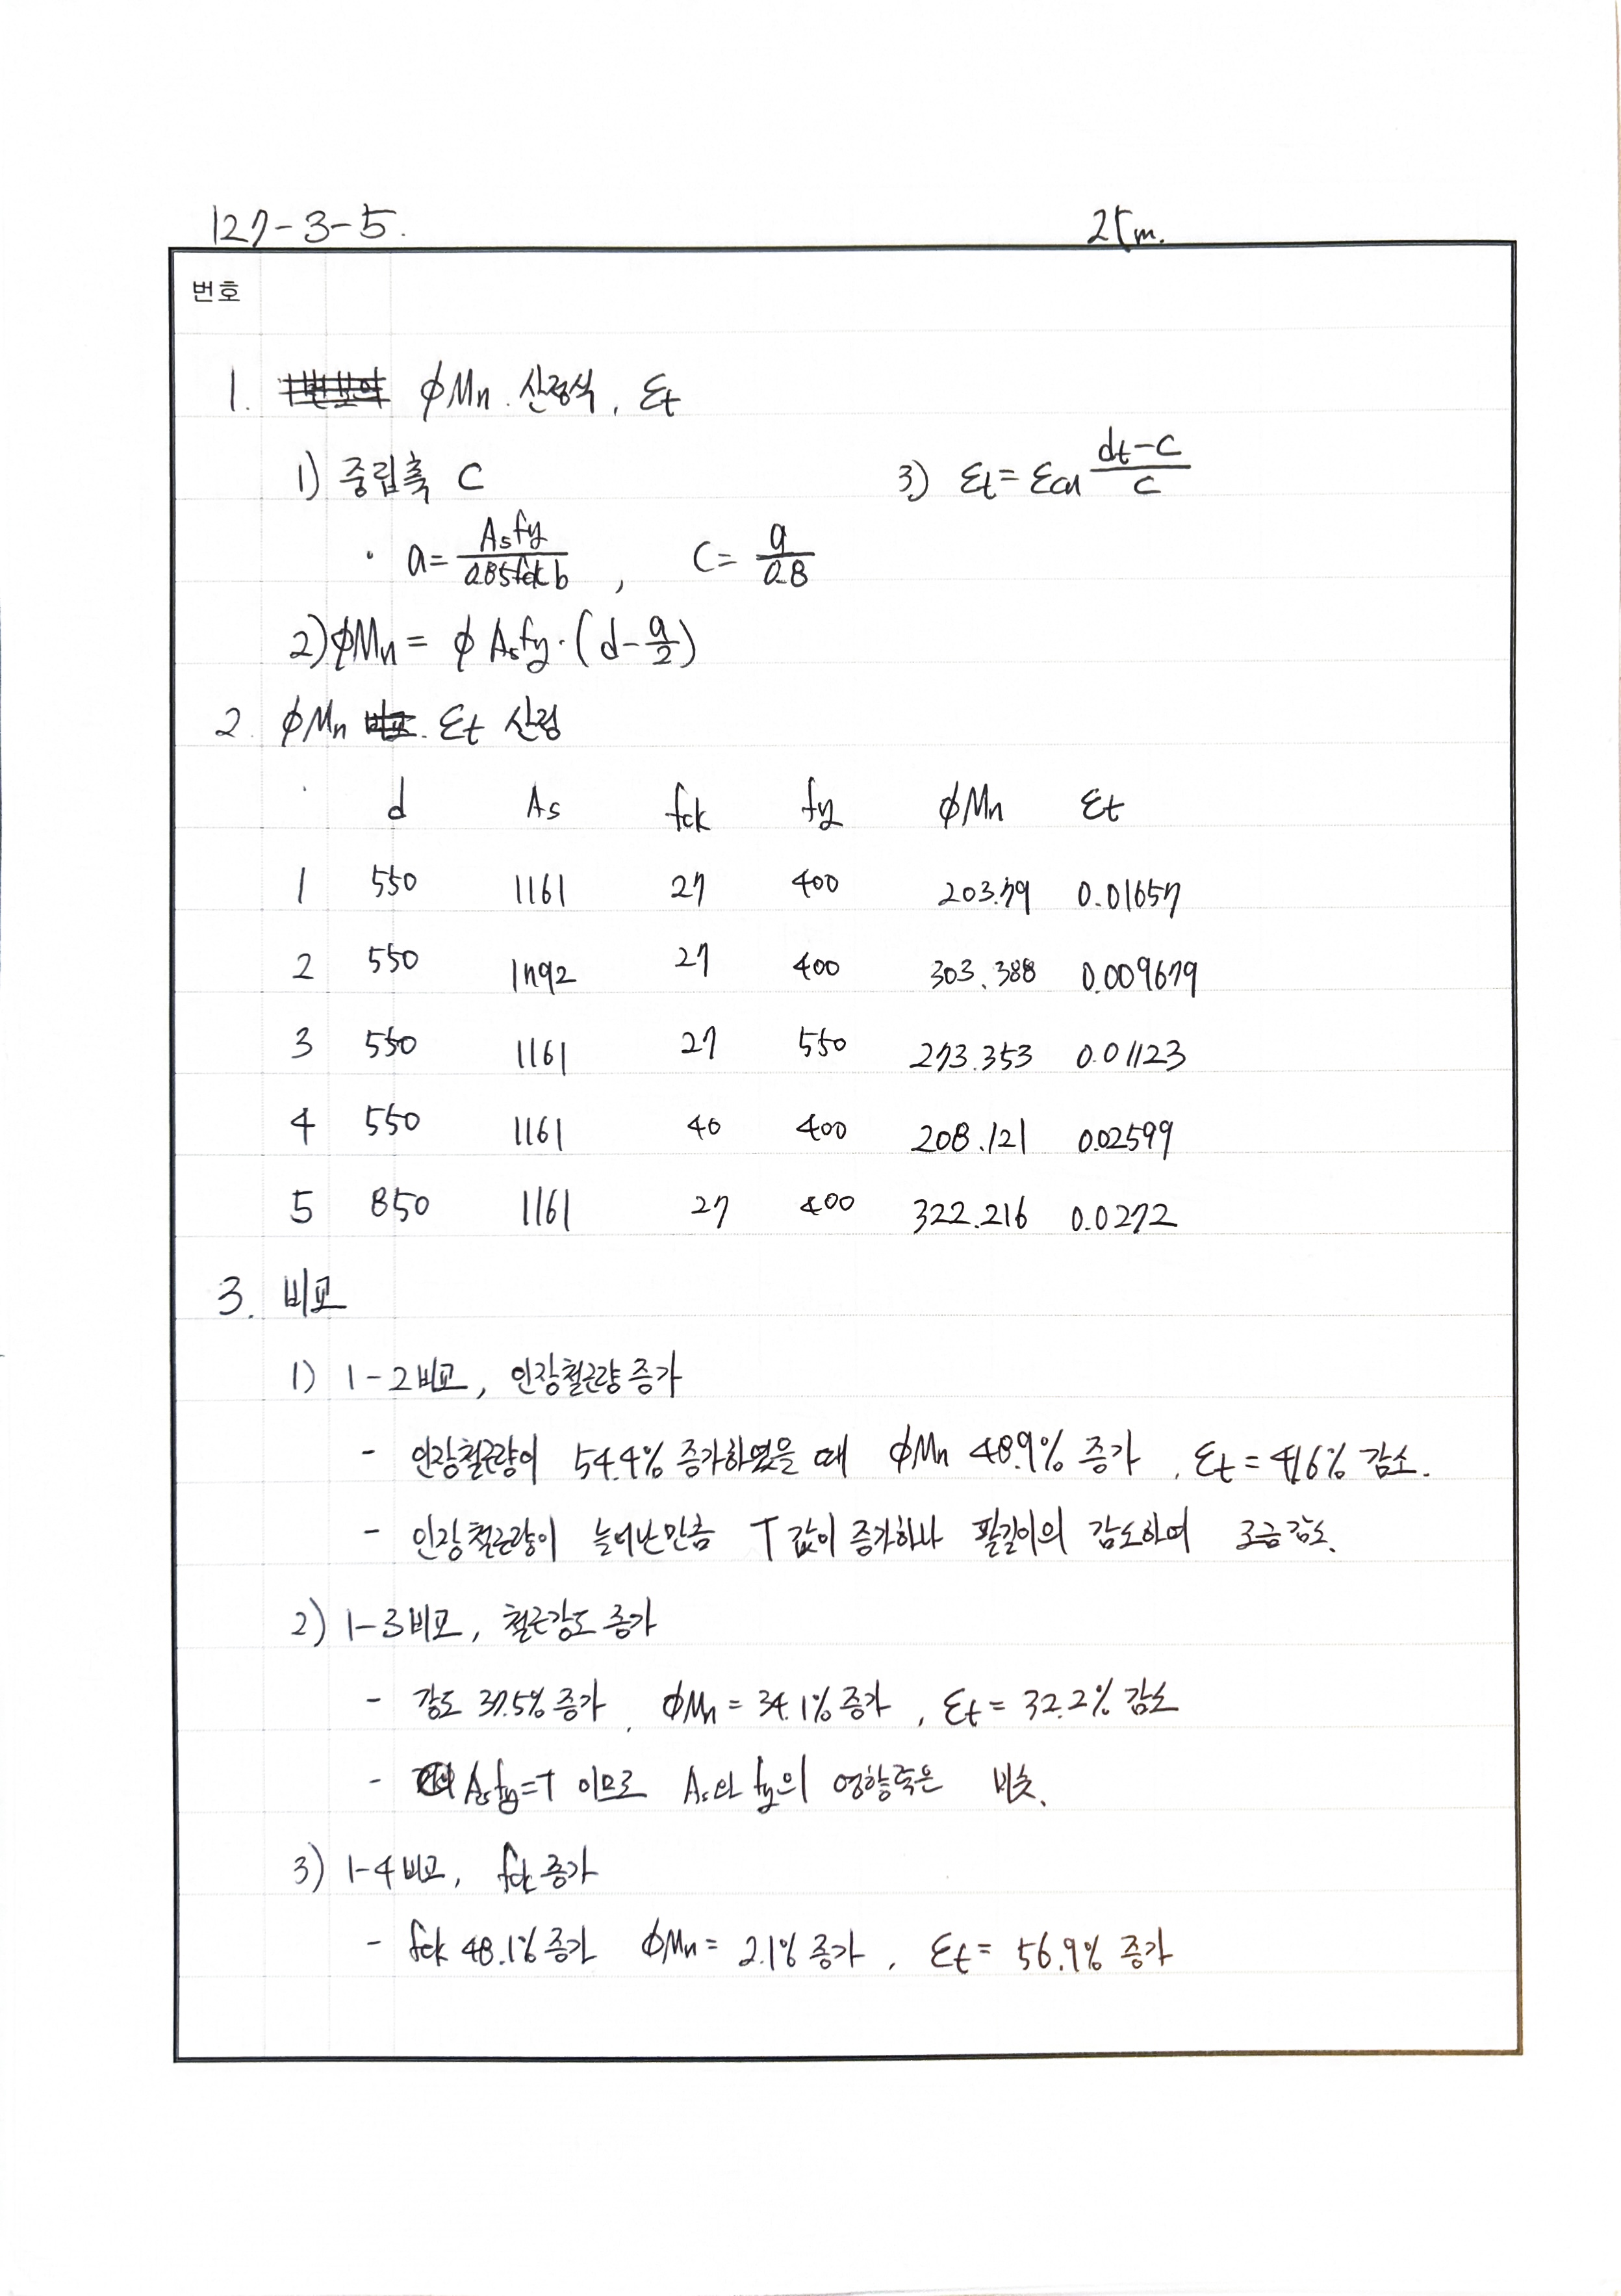 127-3-5. 25m.
번호
1. φMn 산정식, εt
1) 중립축 C
3) εt = εcu (dt-c)/c
· a = Asfy/0.85fck b , C = a/0.8
2) φMn = φ Asfy·(d-a/2)
2. φMn εt 산정
d As fck fy φMn εt
1 550 1161 27 400 203.79 0.01657
2 550 1792 27 400 303.388 0.009679
3 550 1161 27 550 273.353 0.01123
4 550 1161 40 400 208.121 0.02599
5 850 1161 27 400 322.216 0.0272
3. 비교
1) 1-2 비교, 인장철근량 증가
- 인장철근량이 54.4% 증가하였을 때 φMn 48.9% 증가, εt = 41.6% 감소.
- 인장철근량이 늘어난만큼 T 값이 증가하나 팔길이의 감소하여 조금 감소.
2) 1-3 비교, 철근강도 증가
- 강도 37.5% 증가, φMn = 34.1% 증가, εt = 32.2% 감소
- Asfy=T 이므로 As와 fy의 영향력은 비슷.
3) 1-4 비교, fck 증가
- fck 48.1% 증가 φMn = 2.1% 증가, εt = 56.9% 증가